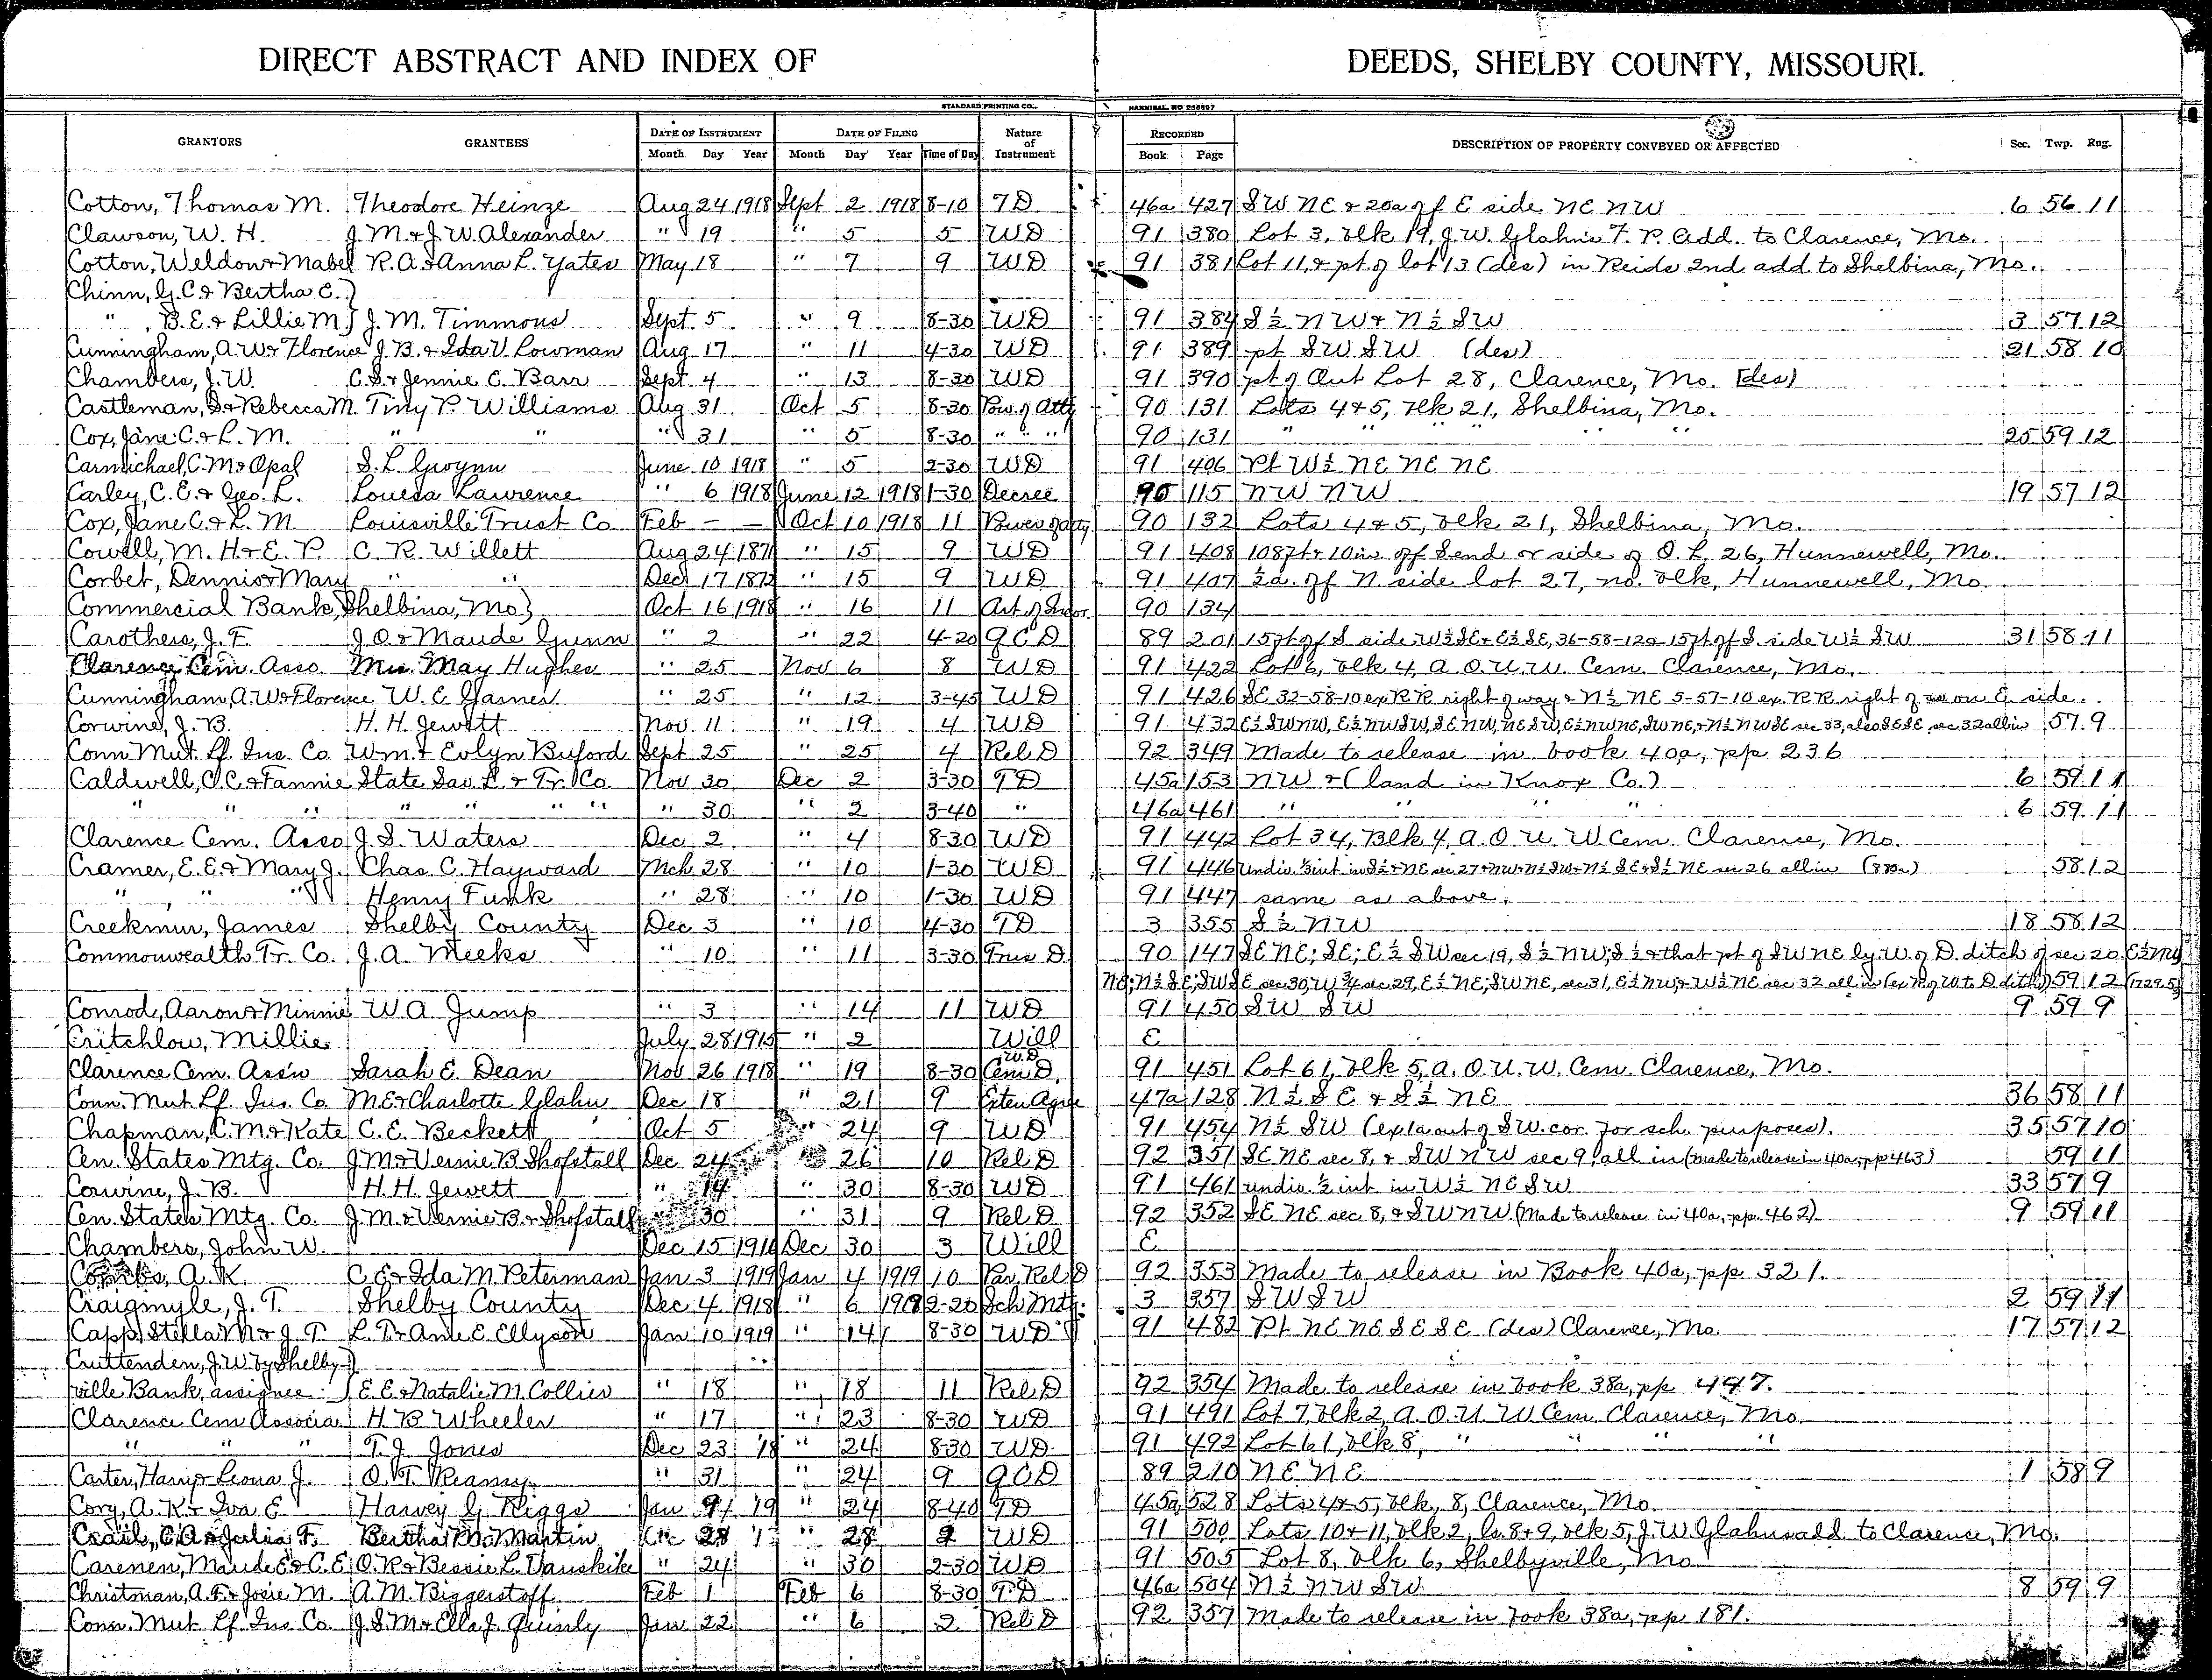 DIRECT ABSTRACT AND INDEX OF DEEDS, SHELBY COUNTY, MISSOURI.
STANDARD PRINTING CO., HANNIBAL, MO 256597
GRANTORS GRANTEES DATE OF INSTRUMENT DATE OF FILING Nature of Instrument RECORDED DESCRIPTION OF PROPERTY CONVEYED OR AFFECTED Sec. Twp. Rng.
Month Day Year Month Day Year Time of Day Book Page
Cotton, Thomas M. Theodore Heinze Aug 24 1918 Sept 2 1918 8-10 TD 46a 427 SW NE & 20a off E side NE NW 6 56 11
Clawson, W. H. J. M. & J. W. Alexander " 19 " 5 5 WD 91 380 Lot 3, blk 19, J. W. Glahn's F. P. add. to Clarence, Mo.
Cotton, Weldon & Mabel R. A. & Anna L. Yates May 18 " 7 9 WD 91 381 Lot 11, & pt of lot 13 (des) in Reids 2nd add. to Shelbina, Mo.
Chinn, G. C. & Bertha E. }
" B. E. & Lillie M. } J. M. Timmons Sept 5 " 9 8-30 WD 91 384 S½ NW & N½ SW 3 57 12
Cunningham, A. W. & Florence J. B. & Ida V. Lowman Aug 17 " 11 4-30 WD 91 389 pt SW SW (des) 21 58 10
Chambers, J. W. C. S. & Jennie C. Barr Sept 4 " 13 8-30 WD 91 390 pt of Out Lot 28, Clarence, Mo. (des)
Castleman, S. & Rebecca M. Tiny P. Williams Aug 31 Oct 5 8-30 Pow of Atty 90 131 Lots 4 & 5, blk 21, Shelbina, Mo.
Cox, Jane C. & L. M. " " " 31 " 5 8-30 " " " 90 131 " " " " " 25 59 12
Carmichael, C. M. & Opal S. L. Gwynn June 10 1918 " 5 2-30 WD 91 406 Pt W½ NE NE NE
Carley, C. E. & Geo. L. Louesa Lawrence " 6 1918 June 12 1918 1-30 Decree 90 115 NW NW 19 57 12
Cox, Jane C. & L. M. Louisville Trust Co Feb – – Oct 10 1918 11 Power of atty 90 132 Lots 4 & 5, blk 21, Shelbina, Mo.
Cowell, M. H. & E. P. C. R. Willett Aug 24 1871 " 15 9 WD 91 408 108ft & 10in off S end or side of O. L. 26, Hunnewell, Mo.
Corbet, Dennis & Mary " " Dec 17 1872 " 15 9 WD 91 407 ½a. off N. side lot 27, no. blk, Hunnewell, Mo.
Commercial Bank, Shelbina, Mo } Oct 16 1918 " 16 11 Art of Incor 90 134
Carothers, J. F. J. O. & Maude Gunn " 2 " 22 4-20 QCD 89 201 15ft off S side W½ SE & E½ SE, 36-58-12 & 15ft off S. side W½ SW 31 58 11
Clarence Cem. Asso. Mrs. May Hughes " 25 Nov 6 8 WD 91 422 Lot 6, blk 4, A. O. U. W. Cem. Clarence, Mo.
Cunningham, A. W. & Florence W. E. Garner " 25 " 12 3-45 WD 91 426 SE 32-58-10 ex RR right of way & N½ NE 5-57-10 ex. RR right of on E. side.
Corwine, J. B. H. H. Jewett Nov. 11 " 19 4 WD 91 432 E½ SW NW, E½ NW SW, SE NW, NE SW, E½ NW NE, SW NE, & N½ NW SE sec 33, also SE SE, sec 32 all in 57 9
Conn Mut. Lf. Ins. Co. Wm. & Evlyn Buford Sept 25 " 25 4 Rel D 92 349 Made to release in book 40a, pp 236
Caldwell, C. C. & Fannie State Sav. L. & Tr. Co. Nov 30 Dec 2 3-30 TD 45a 153 NW & (land in Knox Co.) 6 59 11
" " " " " " " " 30 " 2 3-40 " 46a 461 " " " " 6 59 11
Clarence Cem. Asso J. S. Waters Dec 2 " 4 8-30 WD 91 442 Lot 34, Blk 4, A. O. U. W. Cem. Clarence, Mo.
Cramer, E. E. & Mary J. Chas. C. Hayward Mch 28 " 10 1-30 WD 91 446 Undiv. int in S½ & NE sec 27 & NW & N½ SW & N½ SE & S½ NE sec 26 all in (880a) 58 12
" " " Henry Funk " 28 " 10 1-30 WD 91 447 same as above.
Creekmur, James Shelby County Dec 3 " 10 4-30 TD 3 355 S½ NW 18 58 12
Commonwealth Tr. Co. J. A. Meeks " 10 " 11 3-30 Trus D. 90 147 SE NE; SE; E½ SW sec 19, S½ NW; S½ & that pt of SW NE ly. W. of D. ditch of sec 20. E½ NW
NE; N½ SE; SW SE sec 30, W ¾ sec 29, E½ NE; SW NE, sec 31, E½ NW; & W½ NE sec 32 all in (ex R of W to D ditch) 59 12
Conrod, Aaron & Minnie W. A. Jump " 3 " 14 11 WD 91 450 SW SW 9 59 9
Critchlow, Millie July 28 1915 " 2 Will E
Clarence Cem. Ass'n Sarah E. Dean Nov 26 1918 " 19 8-30 W.D. Cem D. 91 451 Lot 61, blk 5, A. O. U. W. Cem. Clarence, Mo.
Conn. Mut. Lf. Ins. Co. M. E. & Charlotte Glahn Dec 18 " 21 9 Exten Agree 47a 128 N½ SE & S½ NE 36 58 11
Chapman, C. M. & Kate C. E. Beckett Oct 5 24 9 WD 91 454 N½ SW (ex 1a out of SW. cor. for sch. purposes). 35 57 10
Cen. States Mtg. Co. J. M. & Vernie B. Shofstall Dec 24 " 26 10 Rel D 92 351 SE NE sec 8, & SW NW sec 9, all in (made to release in 40a, pp 463) 59 11
Corwine, J. B. H. H. Jewett " 14 " 30 8-30 WD 91 461 undiv. ½ int in W½ NE SW 33 57 9
Cen. States Mtg. Co. J. M. & Vernie B. & Shofstall 30 " 31 9 Rel D 92 352 SE NE sec 8, & SW NW (Made to release in 40a, pp. 462) 9 59 11
Chambers, John W. Dec 15 1916 Dec 30 3 Will E
A. K. C. E. & Ida M. Peterman Jan 3 1919 Jan 4 1919 10 Par. Rel D 92 353 Made to release in Book 40a, pp 321.
Craigmyle, J. T. Shelby County Dec 4 1918 " 6 2-20 Sch Mtg. 3 357 SW SW 2 59 11
Capp, Stella M. & J. T. L. T. & Ame E. Ellyson Jan 10 1919 " 14 8-30 WD 91 482 Pt NE NE SE SE (des) Clarence, Mo. 17 57 12
Cruttenden, J. W. by Shelby- }
ville Bank, assignee } E. E. & Natalie M. Collier " 18 " 18 11 Rel D 92 354 Made to release in book 38a, pp 447.
Clarence Cem Associa. H. B. Wheeler " 17 " 23 8-30 WD 91 491 Lot 7, blk 2, A. O. U. W. Cem. Clarence, Mo
" " " T. J. Jones Dec 23 '18 " 24 8-30 WD. 91 492 Lot 61, blk 8, " " " "
Carter, Harry & Leona J. O. T. Reamy " 31 " 24 9 QCD 89 210 NE NE 1 58 9
Cory, A. K. & Iva E Harvey G. Riggs Jan 19 " 24 8-40 TD 45a 528 Lots 4 & 5, blk, 8, Clarence, Mo.
C. A. & Julia F. Bertha M. Martin 28 " 28 9 WD 91 500 Lots 10 & 11, blk 2, ls. 8 & 9, blk 5, J. W. Glahn's add. to Clarence, Mo.
Carenen, Maude E. & C. E. O. R. & Bessie L. Vanskike " 24 " 30 2-30 WD 91 505 Lot 8, blk 6, Shelbyville, Mo
Christman, A. F. & Josie M. A. M. Biggerstoff Feb 1 Feb 6 8-30 TD 46a 504 N½ NW SW 8 59 9
Conn. Mut. Lf. Ins. Co. J. S. M. & Ella J. Quinly Jan 22 " 6 2 Rel D 92 357 Made to release in book 38a, pp 181.